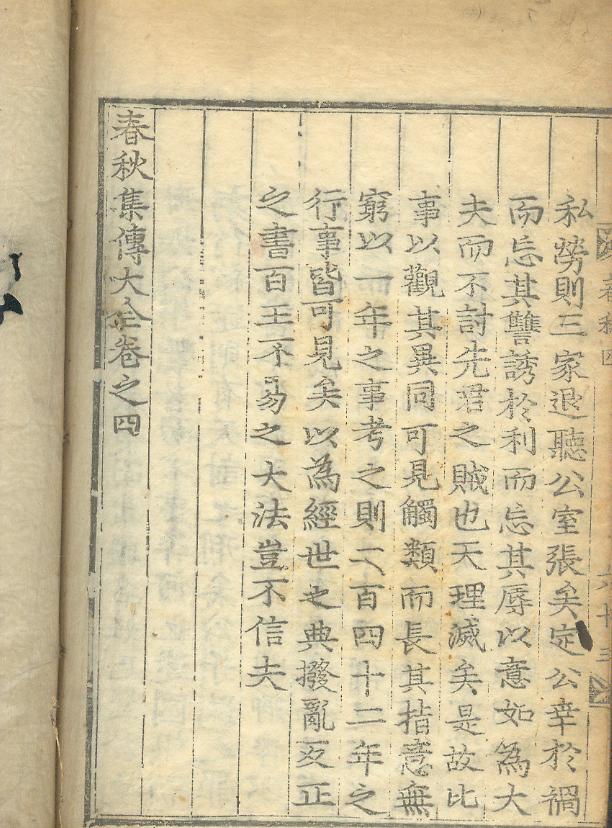 春秋四
六十三
私勞則三家退聽公室張矣定公幸於禍
而忘其讐誘於利而忘其辱以意如為大
夫而不討先君之賊也天理滅矣是故比
事以觀其異同可見觸類而長其指意無
窮以一年之事考之則二百四十二年之
行事皆可見矣以為經世之典撥亂反正
之書百王不易之大法豈不信夫
春秋集傳大全卷之四